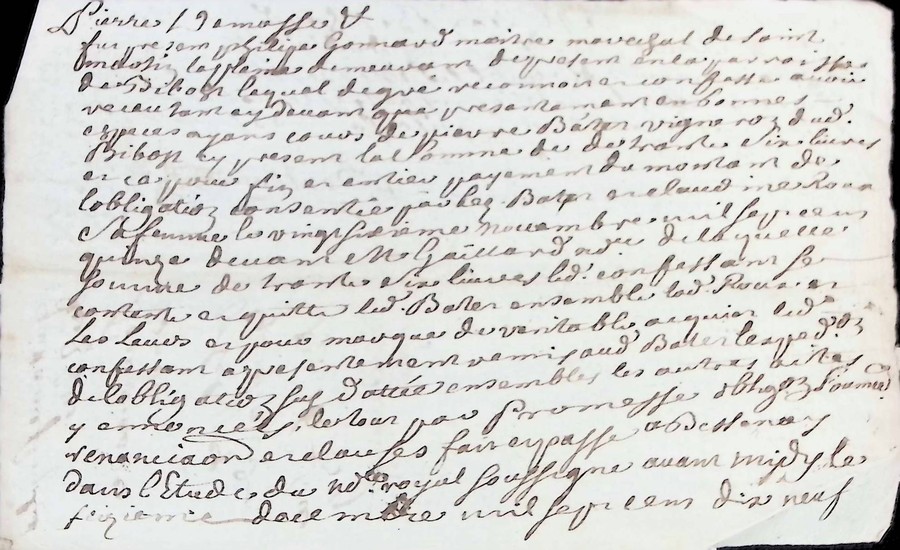 Pierre
fut present philipe Gonnard maitre marechal de Saint
martin laplaine demeurant depresent en la parroisse
de Bibost lequel de gré reconnoit et confesse avoir
receu tant cy devant que presentement en bonnes
espèces ayant cours de pierre Bater vigneron dud.
Bibost cy present la somme de de trante six livres
et ce pour fin et entier payement du montant de
lobligation consentie par led. Bater et claudine Roux
sa femme le vingt sixieme novembre mil sept cens
quinze devant Me Gaillard nore. de laquelle
somme de trante six livres led. confessant se
contante et quitte led. Bater ensemble lad. Roux et
les leurs et pour marque de veritable acquit led.
confessant a presentement remis aud. Bater lexped.on
de lobligation sus dattée ensembles les autres actes
y enoncés, le tout par Promesse obligaon
renanciaon et clauses fait et passé a Bessenay
dans l'Etude du no.re royal soussigné avant midy le
decembre mil sept cens dix neuf